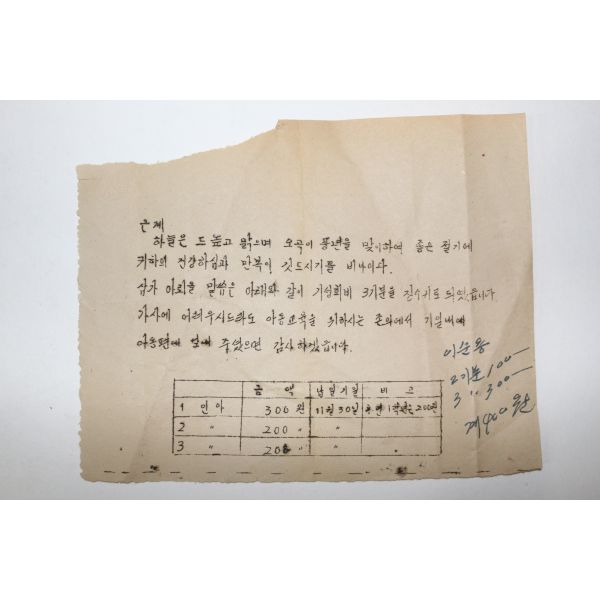 근계
하늘은 드높고 맑으며 오곡이 풍편을 맞이하여 좋은 절기에
귀하의 건강하심과 만복이 깃드시기를 비나이다.
삼가 아뢰올 말씀은 아래와 같이 기성회비 3기분을 징수키로 되었습니다
가사에 어려우시드라도 아동교육을 위하시는 존의에서 기일내에
아동편에 보내 주셨으면 감사하겠습니다.
금 액 납일기일 비 고
1 인아 300원 11월 30일 1학년은 200원
2 〃 200 〃 〃
3 〃 200 〃 〃
이순용
2기분 100—
3 〃 300—
계 400원